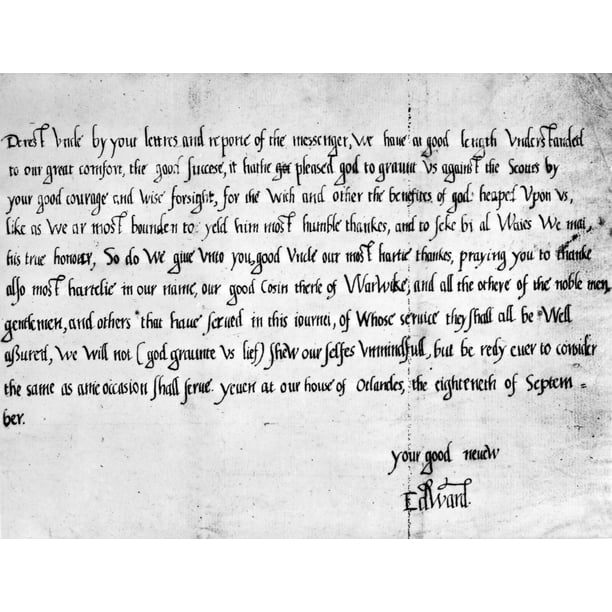 Derest Uncle by your lettres and reporte of the messenger, we have at good length understanded
to our great comfort, the good succese, it hathe pleased god to graunt us against the Scottes by
your good courage and wise forsight, for the wich and other the benefites of god heaped upon us,
like as we ar most bounden to yeld him most humble thankes, and to seke bi al waies we mai,
his true honour, So do we give unto you, good Uncle our most hartie thankes, praying you to thanke
also most hartelie in our name, our good Cosin therle of Warwike, and all the othere of the noble men,
gentlemen, and others that have served in this iournei, of whose service they shall all be well
assured, we will not (god graunte us lief) shew our selfes unmindfull, but be redy ever to consider
the same as anie occasion shall serve. yeven at our house of Otlandes, the eighteneth of Septem=
ber.
your good neuew
Edward.